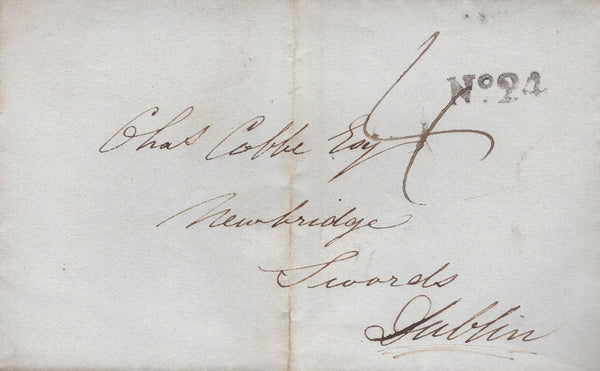 No. 24
4
Chas Cobbe Esq
Newbridge
Swords
Dublin